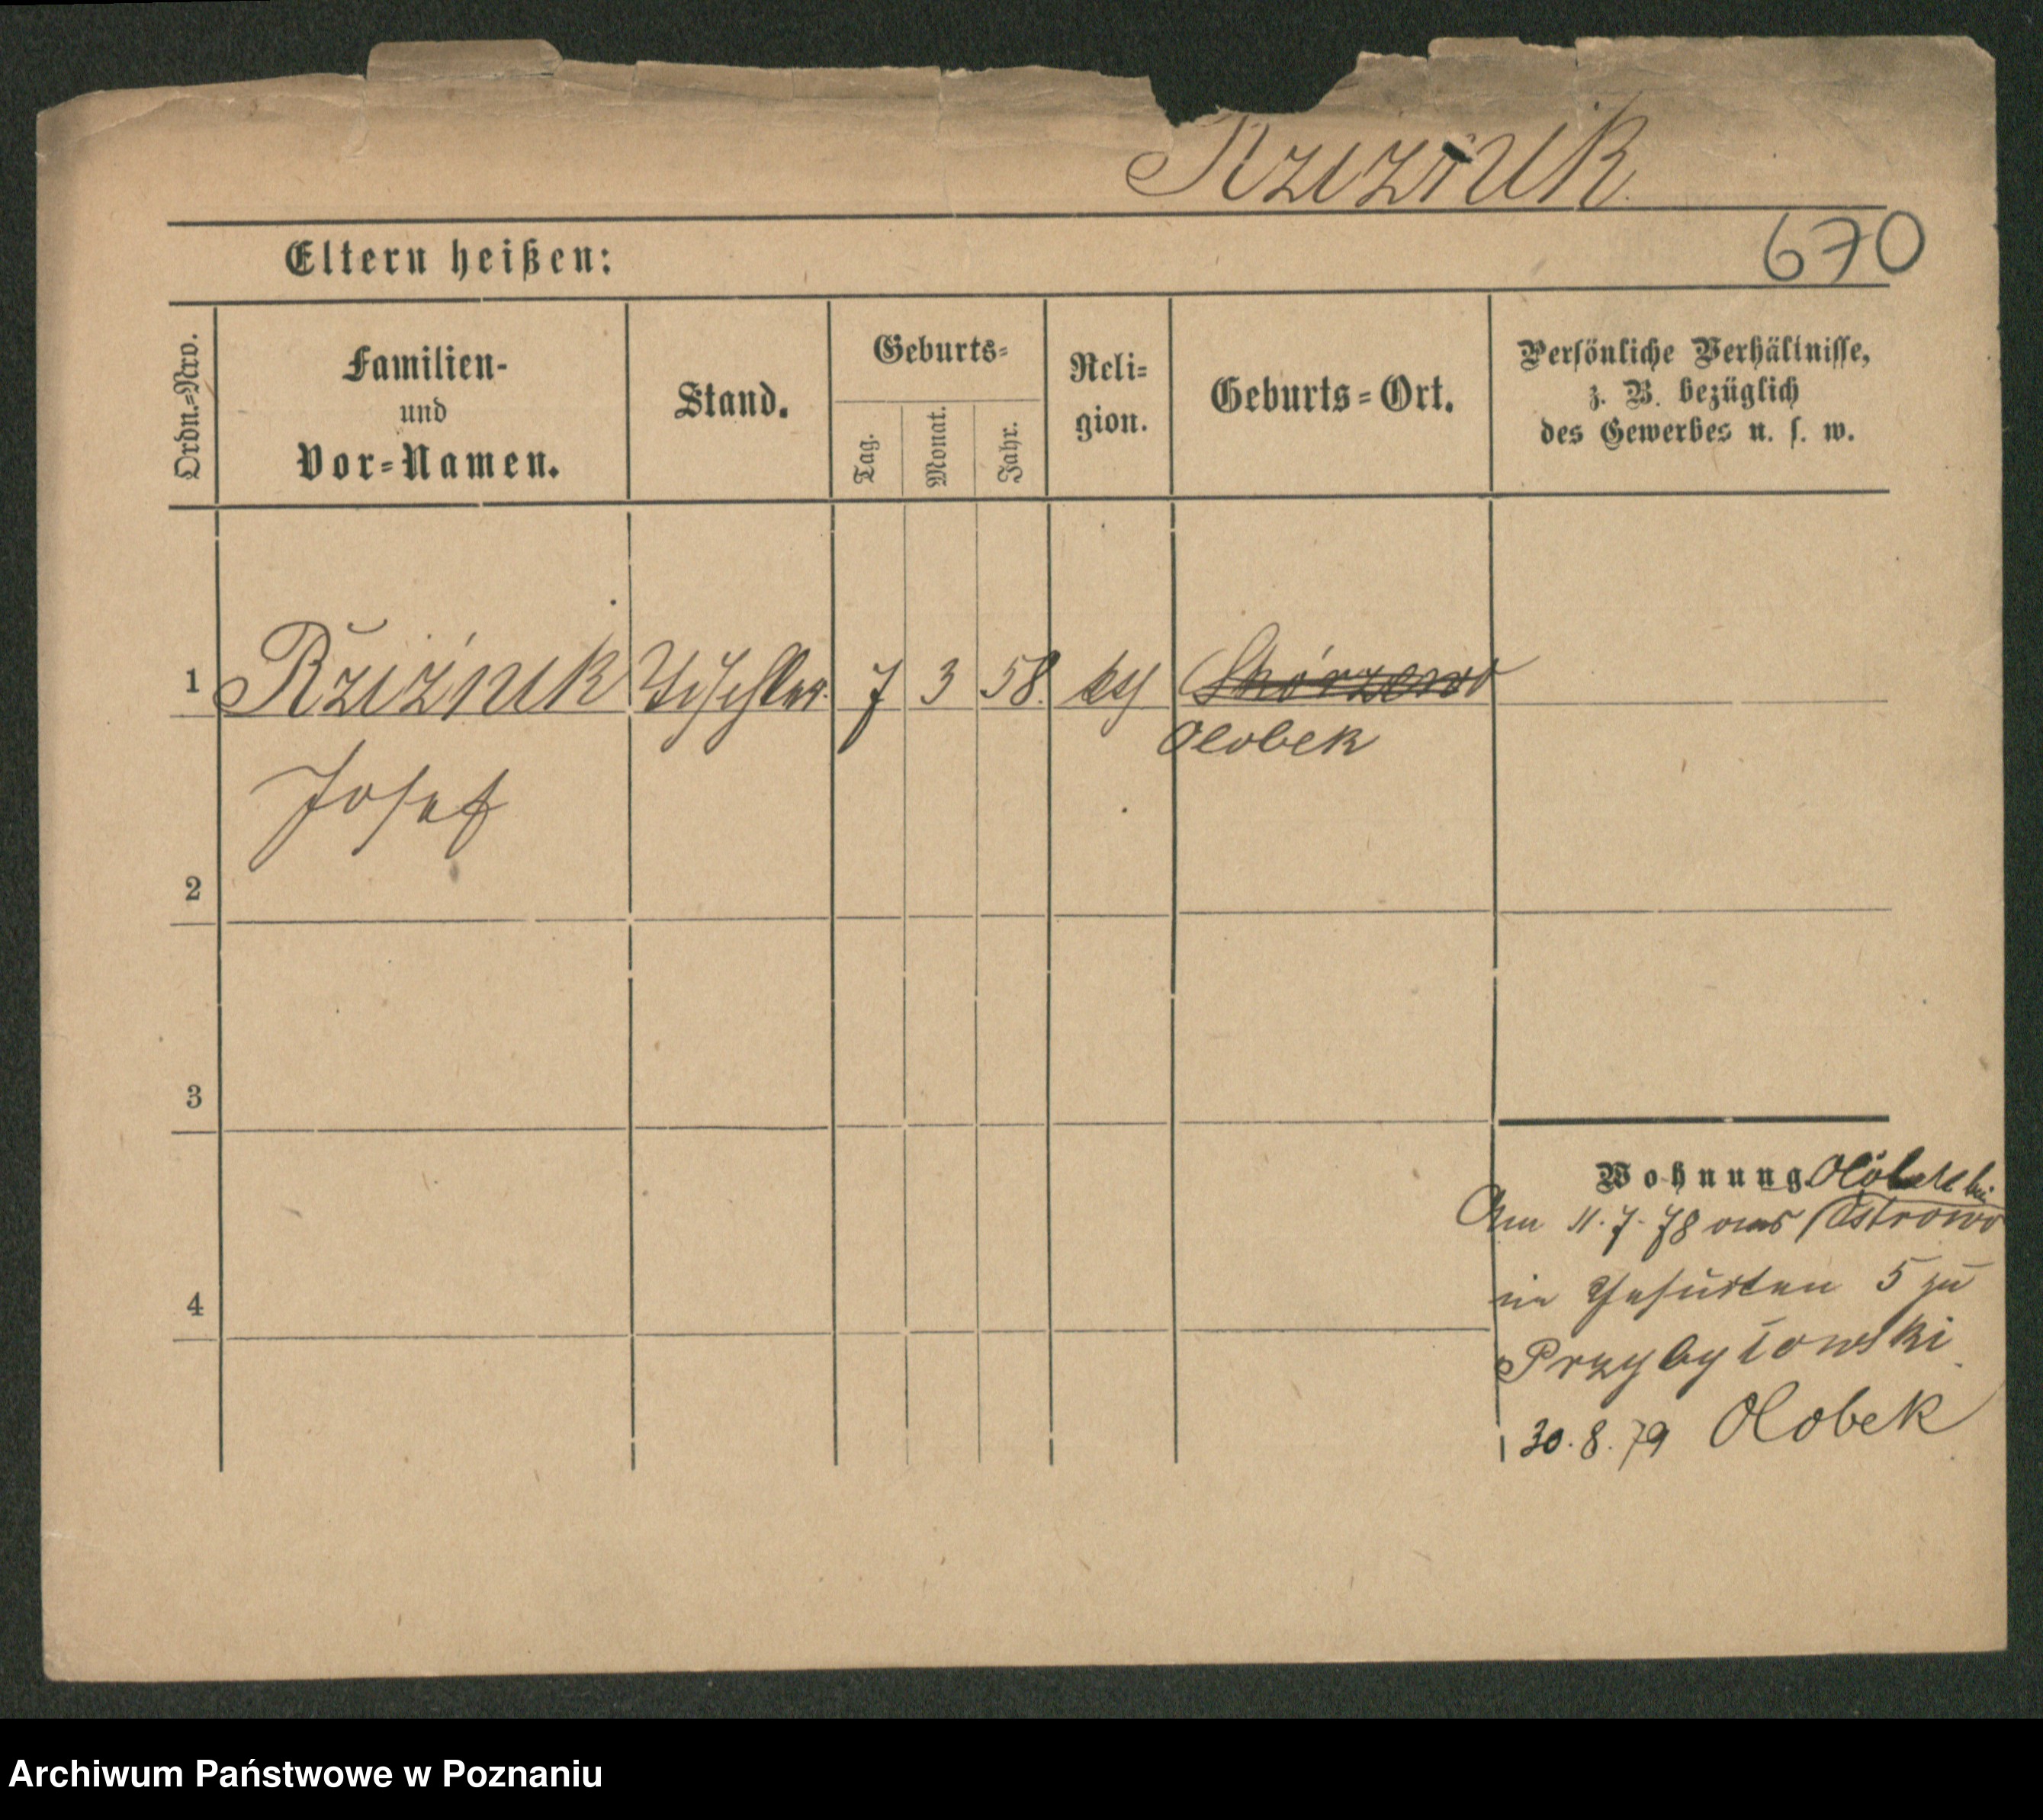 Rzeznik
670
Eltern heißen:
Ordn.=Nro.
Familien-
und
Vor=Namen.
Stand.
Geburts=
Tag.
Monat.
Jahr.
Reli=
gion.
Geburts=Ort.
Persönliche Verhältnisse,
z. B. bezüglich
des Gewerbes u. s. w.
1 Rzeźnik Tischler. 7 3 58. kth Skórzewo
Olobek
Josef
2
3
4
Wohnung Olobek bei
Am 11.7.78 aus Ostrowo
5 zu
Przybyłowski
30.8.79 Olobek
Archiwum Państwowe w Poznaniu